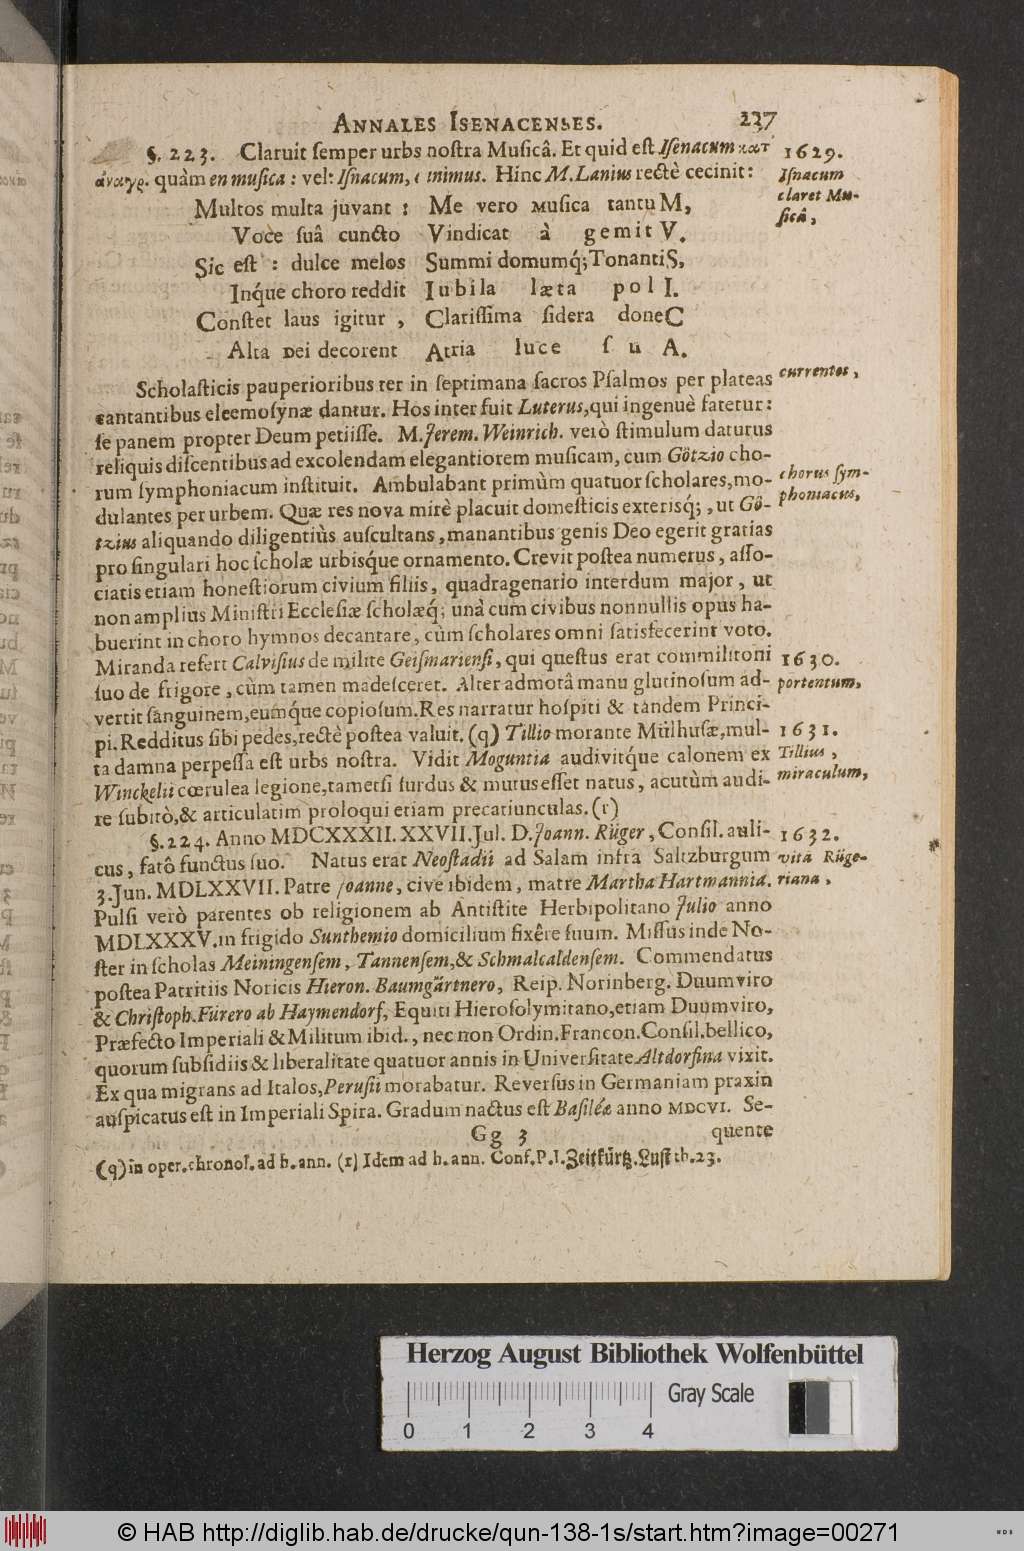 ANNALES ISENACENSES. 237
§. 223. Claruit ſemper urbs noſtra Muſicâ. Et quid eſt Iſenacum κατ' 1629.
ἀναγρ. quàm en muſica : vel: Iſnacum, canimus. Hinc M. Lanius rectè cecinit: Iſnacum
claret Mu-
ſicâ,
Multos multa juvant : Me vero Muſica tantuM,
Voce ſuâ cuncto Vindicat à gemitV.
Sic eſt : dulce melos Summi domumq́;TonantiS,
Inq́ue choro reddit Iubila læta polI.
Conſtet laus igitur, Clariſſima ſidera doneC
Alta Dei decorent Atria luce ſuA.
Scholaſticis pauperioribus ter in ſeptimana ſacros Pſalmos per plateas currentes,
cantantibus eleemoſynæ dantur. Hos inter fuit Luterus, qui ingenuè fatetur:
ſe panem propter Deum petiiſſe. M. Jerem. Weinrich. verò ſtimulum daturus
reliquis diſcentibus ad excolendam elegantiorem muſicam, cum Götzio cho-
rum ſymphoniacum inſtituit. Ambulabant primùm quatuor ſcholares, mo- chorus ſym-
phoniacus,
dulantes per urbem. Quæ res nova mirè placuit domeſticis exterisq́;, ut Gö-
tzius aliquando diligentiùs auſcultans, manantibus genis Deo egerit gratias
pro ſingulari hoc ſcholæ urbisq́ue ornamento. Crevit poſtea numerus, aſſo-
ciatis etiam honeſtiorum civium filiis, quadragenario interdum major, ut
non amplius Miniſtri Eccleſiæ ſcholæq́; unà cum civibus nonnullis opus ha-
buerint in choro hymnos decantare, cùm ſcholares omni ſatisfecerint voto.
Miranda refert Calviſius de milite Geiſmarienſi, qui queſtus erat commilitoni 1630.
ſuo de frigore, cùm tamen madeſceret. Alter admotâ manu glutinoſum ad- portentum,
vertit ſanguinem, eumq́ue copioſum. Res narratur hoſpiti & tandem Princi-
pi. Redditus ſibi pedes, rectè poſtea valuit. (q) Tillio morante Mülhuſæ, mul- 1631.
ta damna perpeſſa eſt urbs noſtra. Vidit Moguntia audivitq́ue calonem ex Tillius,
Winckelii cœrulea legione, tametſi ſurdus & mutus eſſet natus, acutùm audi- miraculum,
re ſubitò, & articulatim proloqui etiam precatiunculas. (r)
§. 224. Anno MDCXXXII. XXVII. Jul. D. Joann. Rüger, Conſil. auli- 1632.
cus, fatô functus ſuo. Natus erat Neoſtadii ad Salam infra Saltzburgum vita Rüge-
3. Jun. MDLXXVII. Patre Joanne, cive ibidem, matre Martha Hartmannia. riana,
Pulſi verò parentes ob religionem ab Antiſtite Herbipolitano Julio anno
MDLXXXV. in frigido Sunthemio domicilium fixêre ſuum. Miſſus inde No-
ſter in ſcholas Meiningenſem, Tannenſem, & Schmalcaldenſem. Commendatus
poſtea Patritiis Noricis Hieron. Baumgärtnero, Reip. Norinberg. Duumviro
& Chriſtoph. Fürero ab Haymendorf, Equiti Hieroſolymitano, etiam Duumviro,
Præfecto Imperiali & Militum ibid., nec non Ordin. Francon. Conſil. bellico,
quorum ſubſidiis & liberalitate quatuor annis in Univerſitate Altdorfina vixit.
Ex qua migrans ad Italos, Peruſii morabatur. Reverſus in Germaniam praxin
auſpicatus eſt in Imperiali Spira. Gradum nactus eſt Baſiléæ anno MDCVI. Se-
Gg 3 quente
(q) in oper. chronol. ad h. ann. (r) Idem ad h. ann. Conf. P. I. Zeitkürtz. Luſt th. 23.
Herzog August Bibliothek Wolfenbüttel
Gray Scale
0 1 2 3 4
© HAB http://diglib.hab.de/drucke/qun-138-1s/start.htm?image=00271